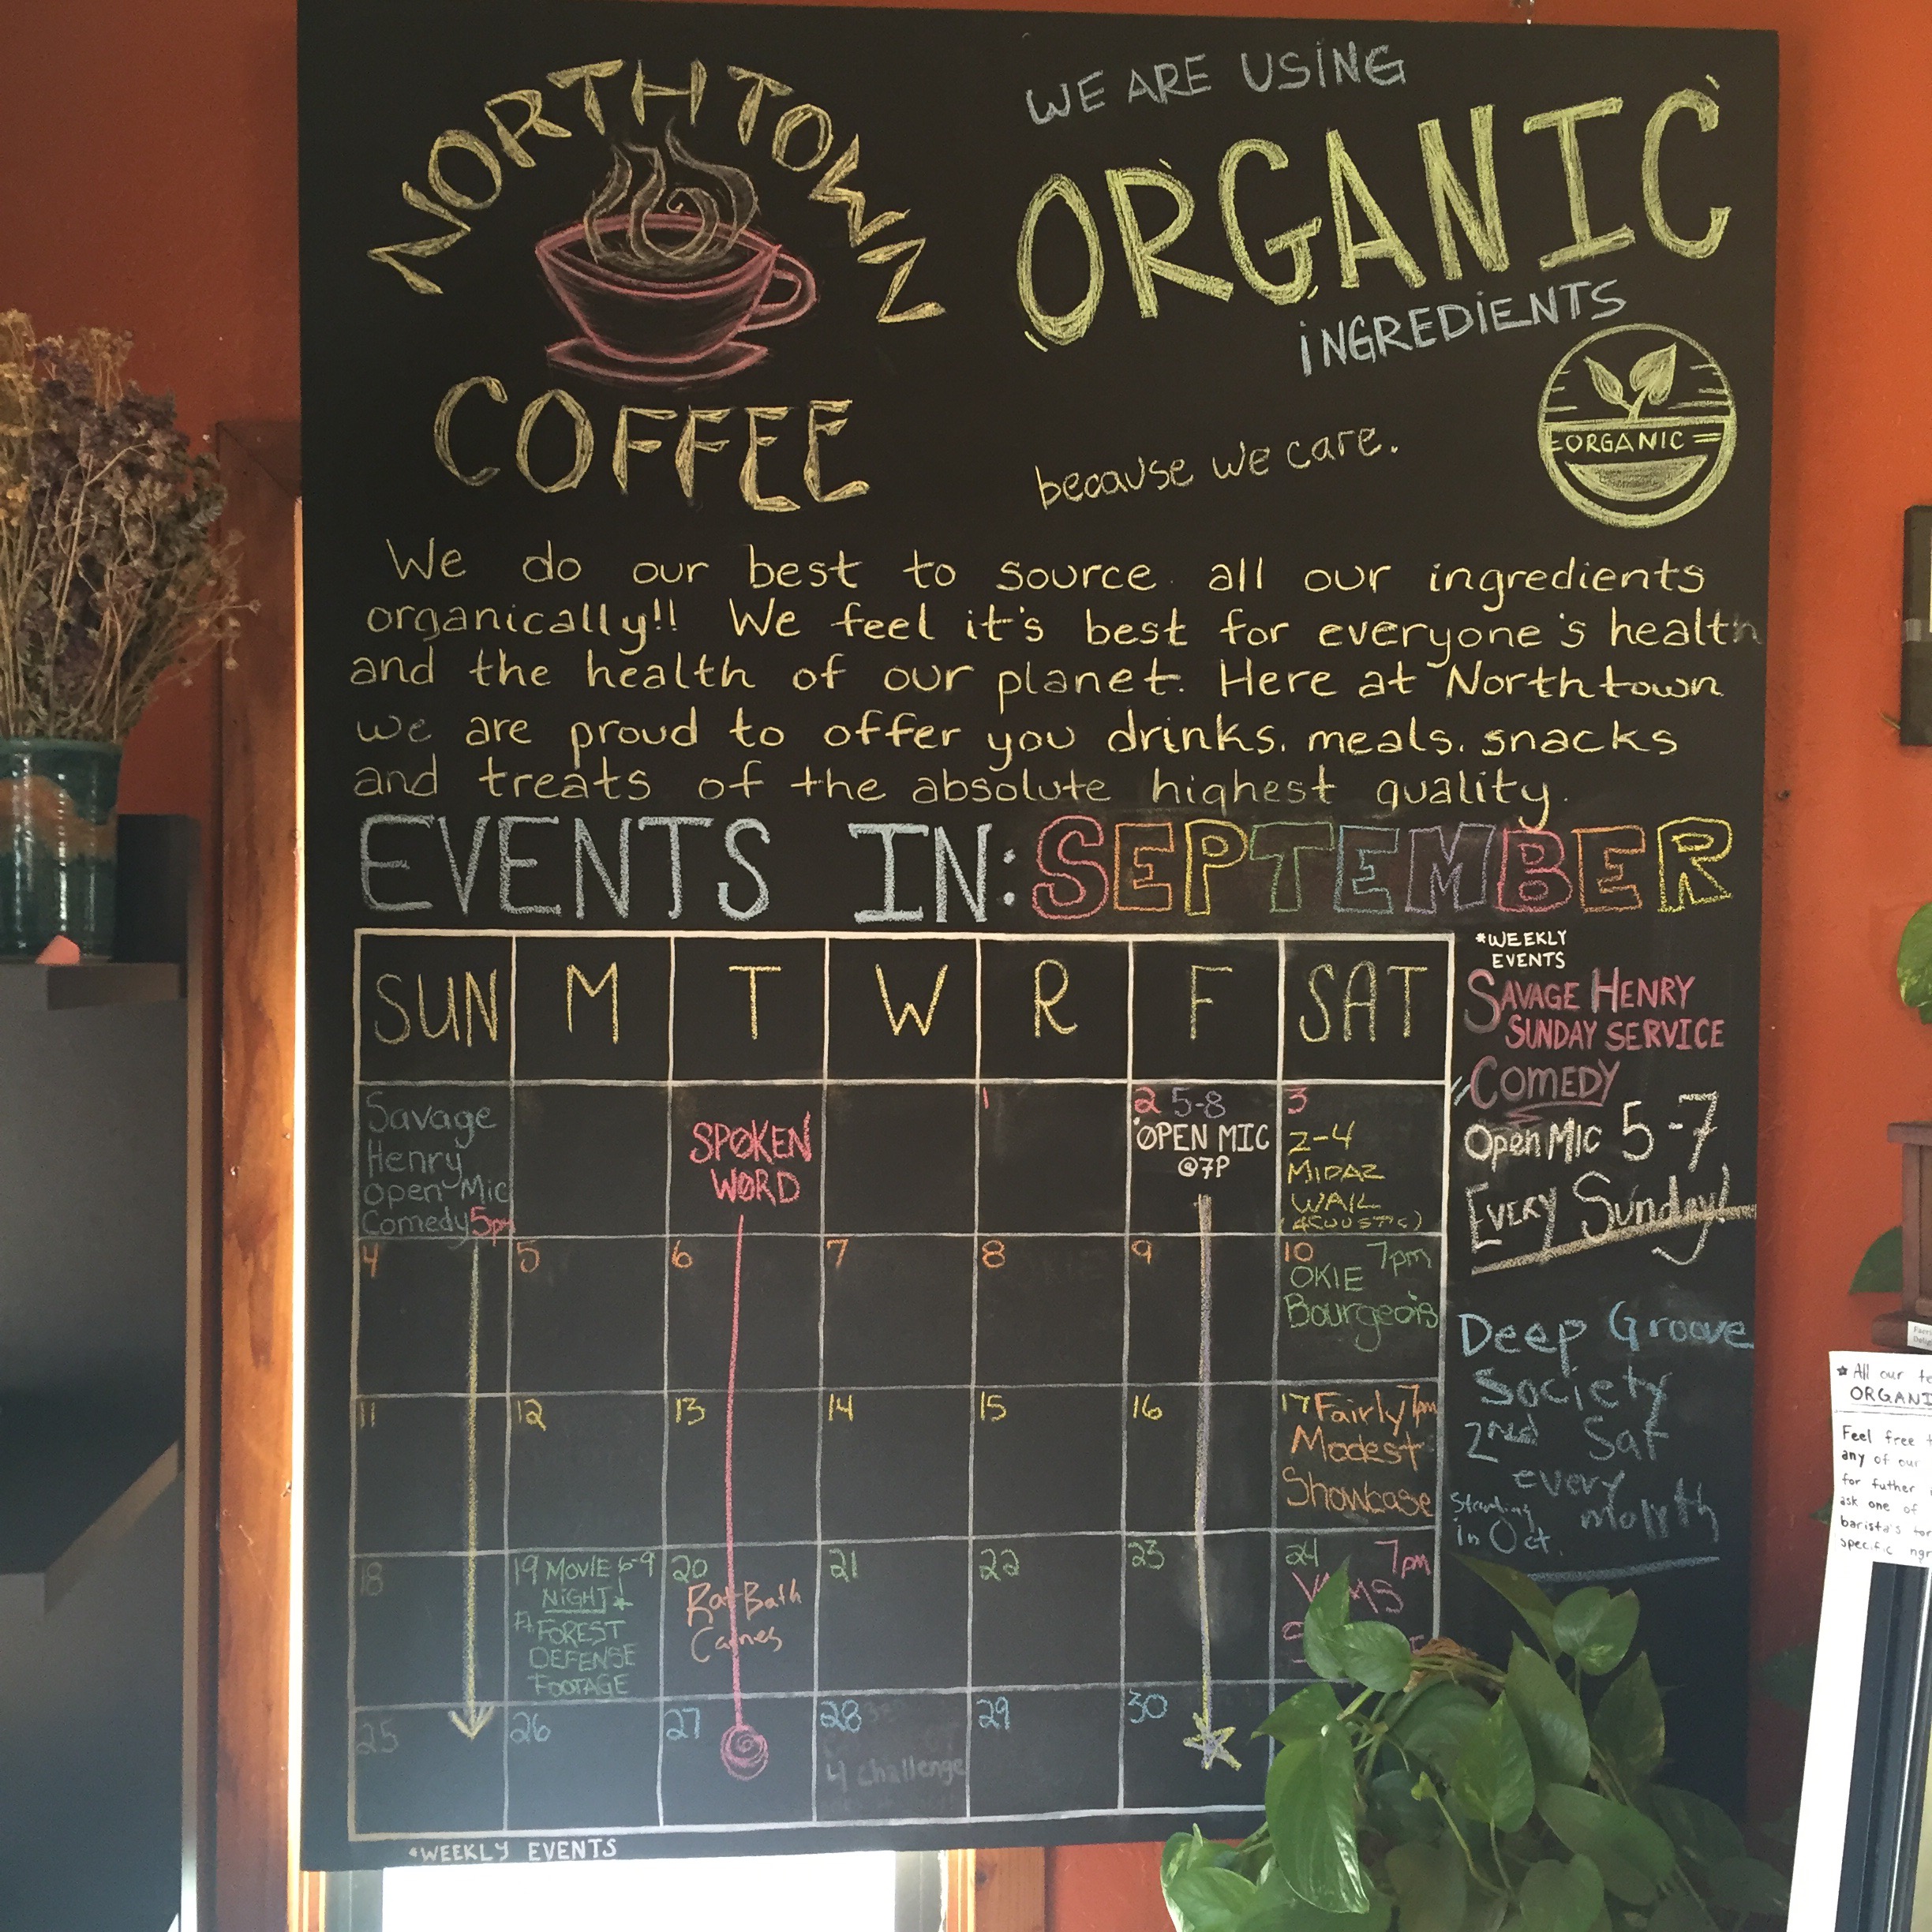 NORTHTOWN
COFFEE
WE ARE USING
ORGANIC
INGREDIENTS
because we care.
ORGANIC
We do our best to source all our ingredients
organically!! We feel it's best for everyone's health
and the health of our planet. Here at Northtown
we are proud to offer you drinks, meals, snacks
and treats of the absolute highest quality.
EVENTS IN: SEPTEMBER
SUN M T W R F SAT
Savage
Henry
Open Mic
Comedy 5pm
SPOKEN
WORD
1
2 5-8
OPEN MIC
@7P
3
2-4
MIDAZ
WAIL
(ACOUSTIC)
4 5 6 7 8 9
10 7pm
OKIE
Bourgeois
11 12 13 14 15 16
17 Fairly 7pm
Modest
Showcase
18
19 MOVIE 6-9
NIGHT!
FOREST
DEFENSE
FOOTAGE
20
Rat Bath
21 22 23
24 7pm
25 26 27
28
4 challenge
29 30
*WEEKLY EVENTS
*WEEKLY
EVENTS
SAVAGE HENRY
SUNDAY SERVICE
COMEDY
Open Mic 5-7
Every Sunday!
Deep Groove
Society
2nd Sat
every
month
Starting
in Oct.
* All our
ORGANI
Feel free
any of our
for futher
ask one of
barista's for
specific